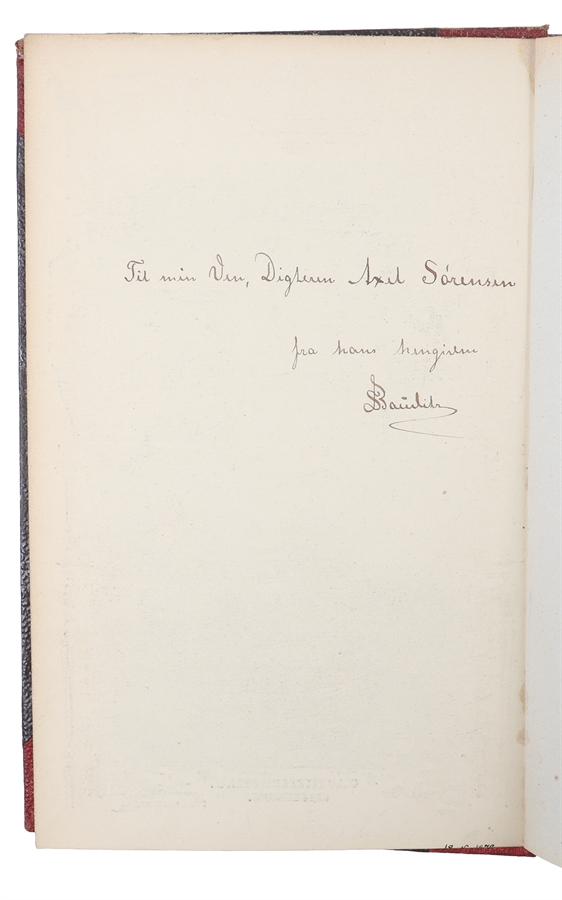 Til min Ven, Digteren Axel Sörensen
fra hans hengivne
SBauditz